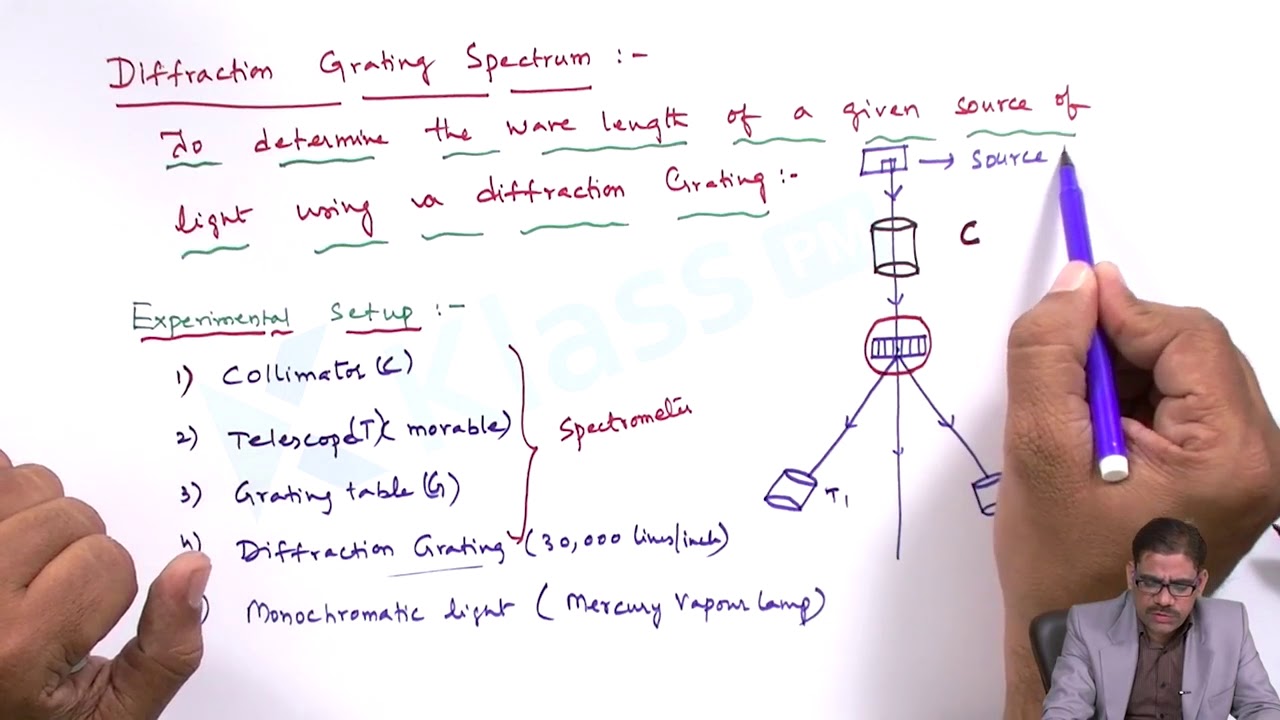 Diffraction Grating Spectrum :-
To determine the wave length of a given source of
light using a diffraction Grating :-
→ Source
C
Experimental Setup :-
1) Collimator (C)
2) Telescope (T) ( movable)
3) Grating table (G)
Spectrometer
T1
4) Diffraction Grating (30,000 lines/inch)
) Monochromatic light ( Mercury Vapour lamp)
Klass PM